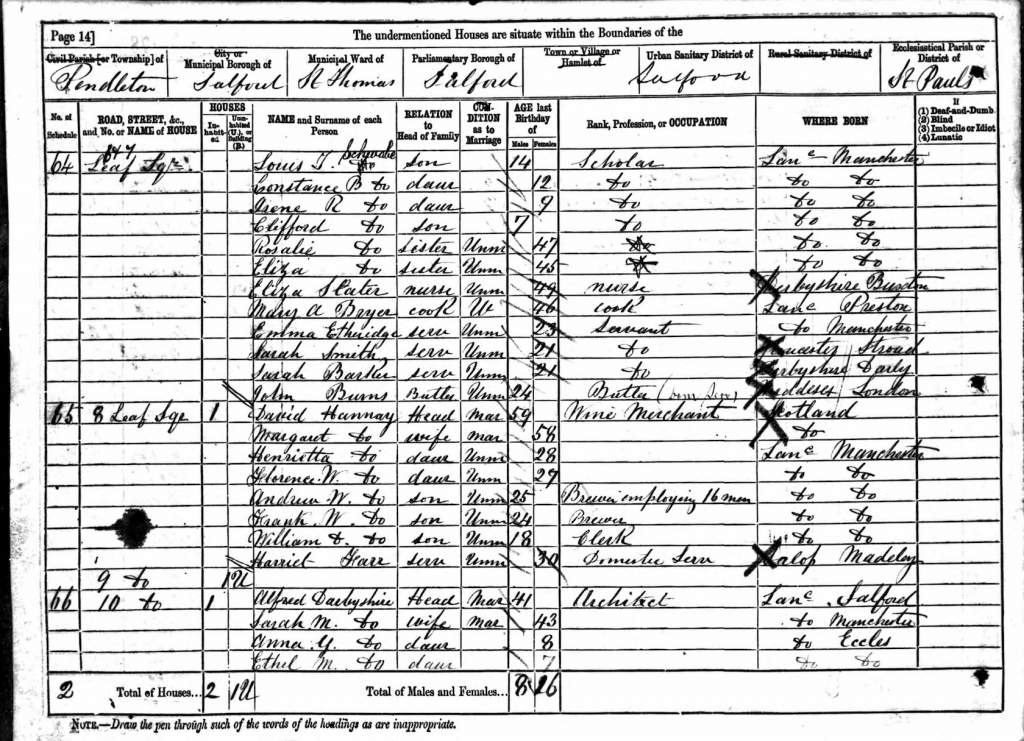 Page 14] The undermentioned Houses are situate within the Boundaries of the
Civil Parish [or Township] of City or Municipal Borough of Municipal Ward of Parliamentary Borough of Town or Village or Hamlet of Urban Sanitary District of Rural Sanitary District of Ecclesiastical Parish or District of
Pendleton Salford St Thomas Salford Salford St Pauls
No. of Schedule ROAD, STREET, &c., and No. or NAME of HOUSE HOUSES Inhabited Uninhabited (U.), or Building (B.) NAME and Surname of each Person RELATION to Head of Family CONDITION as to Marriage AGE last Birthday of Males Females Rank, Profession, or OCCUPATION WHERE BORN If (1) Deaf-and-Dumb (2) Blind (3) Imbecile or Idiot (4) Lunatic
64 Leaf Sqre Louis T. Schwabe son 14 Scholar Lanc Manchester
Constance B do daur 12 do do do
Irene R do daur 9 do do do
Clifford do son 7 do do do
Rosalie do sister Unm 47 do do do
Eliza do sister Unm 45 do do
Eliza Slater nurse Unm 49 nurse Derbyshire Buxton
Mary A Bryer cook W 46 cook Lanc Preston
Emma Etheridge serv Unm 23 Servant do Manchester
Sarah Smith serv Unm 21 do Gloucester Stroud
Sarah Barker serv Unm 21 do Derbyshire Darly
John Burns Butler Unm 24 Butler (Dom Serv) Middlesex London
65 8 Leaf Sqr 1 David Hannay Head Mar 59 Wine Merchant Scotland
Margaret do wife Mar 58 do
Henrietta do daur Unm 28 Lanc Manchester
Florence W. do daur Unm 27 do do
Andrew W. do son Unm 25 Brewer employing 16 men do do
Frank W. do son Unm 24 Brewer do do
William D. do son Unm 18 Clerk do do
Harriet Farr serv Unm 30 Domestic Serv Salop Madeley
9 do 1U
66 10 do 1 Alfred Darbyshire Head Mar 41 Architect Lanc Salford
Sarah M. do wife Mar 43 do Manchester
Anna Y. do daur 8 do Eccles
Ethel M. do daur 7 do do
2 Total of Houses... 2 1U Total of Males and Females... 8 16
NOTE.—Draw the pen through such of the words of the headings as are inappropriate.